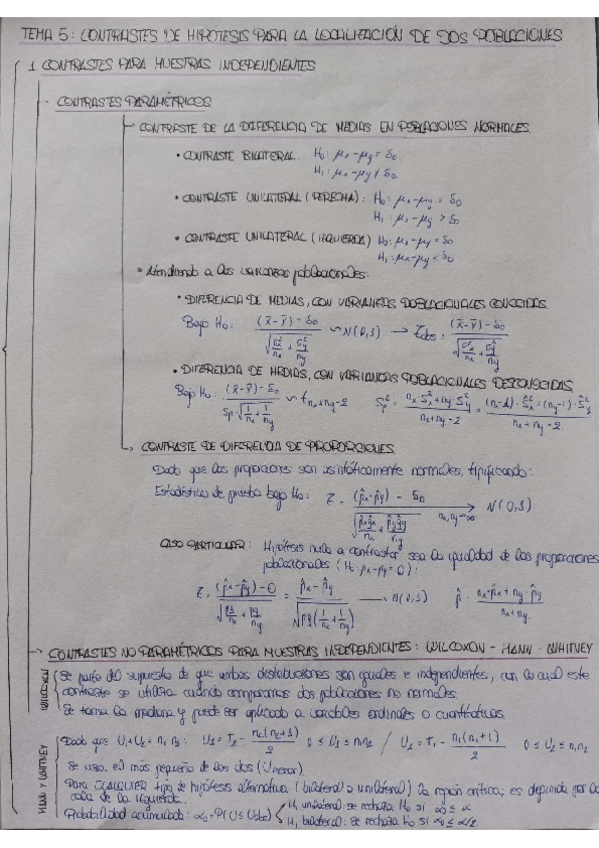 TEMA 5: CONTRASTES DE HIPÓTESIS PARA LA LOCALIZACIÓN DE DOS POBLACIONES
1. CONTRASTES PARA MUESTRAS INDEPENDIENTES
CONTRASTES PARAMÉTRICOS
CONTRASTE DE LA DIFERENCIA DE MEDIAS EN POBLACIONES NORMALES.
• CONTRASTE BILATERAL. H₀: μx - μy = δ₀
H₁: μx - μy ≠ δ₀
• CONTRASTE UNILATERAL (DERECHA): H₀: μx - μy = δ₀
H₁: μx - μy > δ₀
• CONTRASTE UNILATERAL (IZQUIERDA) H₀: μx - μy = δ₀
H₁: μx - μy < δ₀
• Atendiendo a las varianzas poblacionales:
• DIFERENCIA DE MEDIAS, CON VARIANZAS POBLACIONALES CONOCIDAS.
Bajo H₀: ((x̄ - ȳ) - δ₀) / √(σ²x/nx + σ²y/ny) ~ N(0,1) → Zobs: ((x̄ - ȳ) - δ₀) / √(σ²x/nx + σ²y/ny)
• DIFERENCIA DE MEDIAS, CON VARIANZAS POBLACIONALES DESCONOCIDAS
Bajo H₀: ((x̄ - ȳ) - δ₀) / (Sp · √(1/nx + 1/ny)) ~ t nx+ny-2 Sp² = (nx S²x + ny S²y) / (nx + ny - 2) = ((nx - 1) · Ŝ²x + (ny - 1) · Ŝ²y) / (nx + ny - 2)
CONTRASTE DE DIFERENCIA DE PROPORCIONES
Dado que las proporciones son asintóticamente normales, tipificando:
Estadístico de prueba bajo H₀: Z = ((p̂x - p̂y) - δ₀) / √(p̂x q̂x/nx + p̂y q̂y/ny) → nx, ny → ∞ N(0,1)
CASO PARTICULAR: Hipótesis nula a contrastar sea la igualdad de las proporciones
poblacionales (H₀: px - py = 0):
Z = ((p̂x - p̂y) - 0) / √(pq/nx + pq/ny) = (p̂x - p̂y) / √(pq(1/nx + 1/ny)) → N(0,1) p̂ = (nx · p̂x + ny · p̂y) / (nx + ny)
CONTRASTES NO PARAMÉTRICOS PARA MUESTRAS INDEPENDIENTES: WILCOXON - MANN - WHITNEY
WILCOXON
Se parte del supuesto de que ambas distribuciones son iguales e independientes, con lo cual este
contraste se utiliza cuando comparamos dos poblaciones no normales.
Se toma la mediana y puede ser aplicado a variables ordinales o cuantitativas.
MANN Y WHITNEY
Dado que U₁ + U₂ = n₁ n₂: U₂ = T₂ - n₂(n₂+1)/2 0 ≤ U₂ ≤ n₁n₂ / U₁ = T₁ - n₁(n₁+1)/2 0 ≤ U₁ ≤ n₁n₂
Se usa el más pequeño de los dos (Umenor).
Para CUALQUIER tipo de hipótesis alternativa (bilateral o unilateral) la región crítica, es definida por la
cola de la izquierda.
Probabilidad acumulada: α₀ = P(U ≤ Uobs) H₁ unilateral: se rechaza H₀ si α₀ ≤ α
H₁ bilateral: se rechaza H₀ si α₀ ≤ α/2